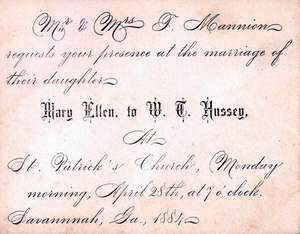 Mr & Mrs F. Mannion
requests your presence at the marriage of
their daughter
Mary Ellen, to W. T. Hussey,
At
St. Patrick's Church, Monday
morning, April 28th, at 7 o'clock.
Savannnah, Ga., 1884